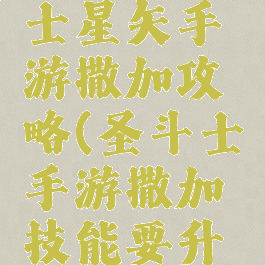 士星矢手
游撒加攻
略(圣斗士
手游撒加
技能要升